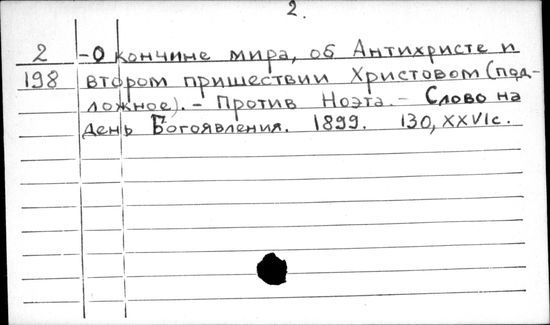 2.
2 -О кончине мира, об Антихристе и
198 втором пришествии Христовом (под-
ложное). - Против Ноэта. - Слово на
день Богоявления. 1899. 130, XXVIс.